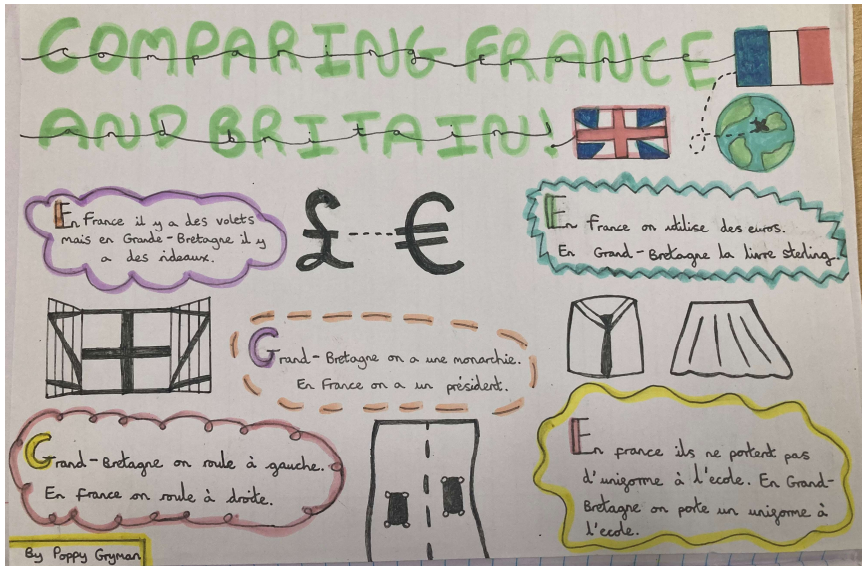 COMPARING FRANCE
comparing france
AND BRITAIN!
and britain!
En France il y a des volets
mais en Grande-Bretagne il y
a des rideaux.
£ €
En france on utilise des euros.
En Grand-Bretagne la livre sterling.
Grand-Bretagne on a une monarchie.
En France on a un président.
Grand-Bretagne on roule à gauche.
En france on roule à droite.
En france ils ne portent pas
d'uniforme à l'ecole. En Grand-
Bretagne on porte un uniforme à
l'ecole.
By Poppy Gryman